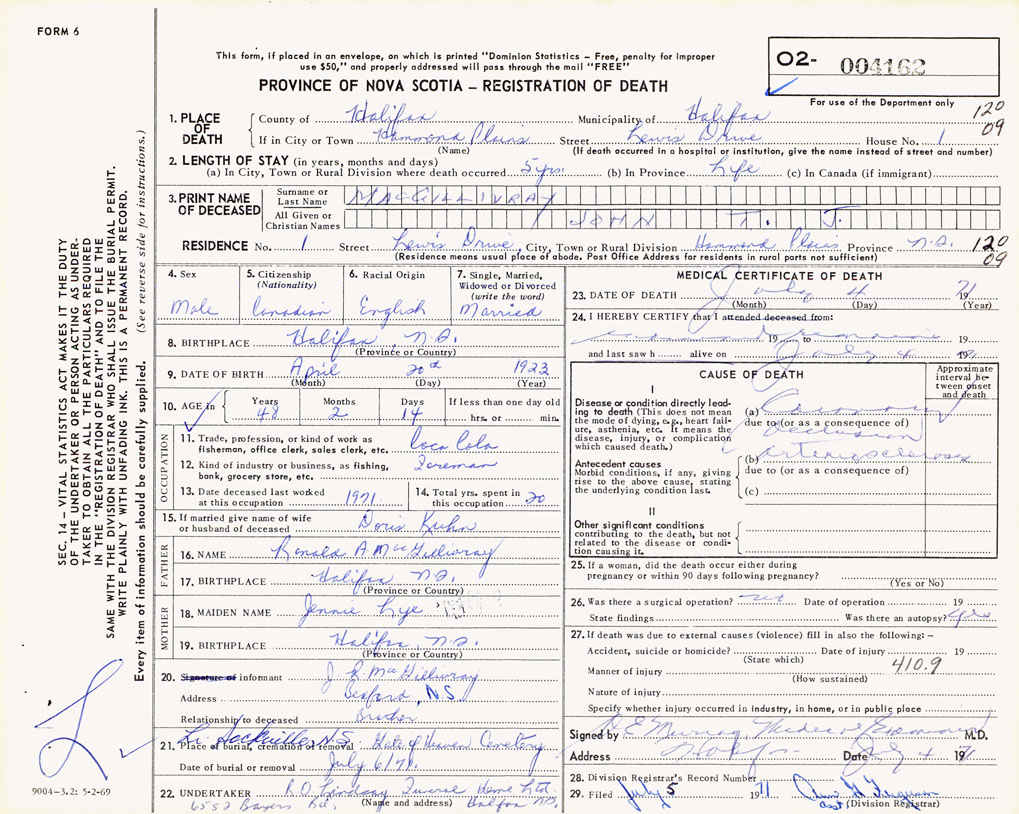 FORM 6
This form, if placed in an envelope, on which is printed "Dominion Statistics – Free, penalty for improper
use $50," and properly addressed will pass through the mail "FREE"
PROVINCE OF NOVA SCOTIA – REGISTRATION OF DEATH
O2- 004162
For use of the Department only
SEC. 14 – VITAL STATISTICS ACT MAKES IT THE DUTY
OF THE UNDERTAKER OR PERSON ACTING AS UNDER-
TAKER TO OBTAIN ALL THE PARTICULARS REQUIRED
IN THE "REGISTRATION OF DEATH" AND TO FILE THE
SAME WITH THE DIVISION REGISTRAR WHO SHALL ISSUE THE BURIAL PERMIT.
WRITE PLAINLY WITH UNFADING INK. THIS IS A PERMANENT RECORD.
Every item of information should be carefully supplied. (See reverse side for instructions.)
1. PLACE OF DEATH
County of Halifax Municipality of Halifax 120
If in City or Town Hammond Plains Street Lewis Drive House No. 1 09
(Name) (If death occurred in a hospital or institution, give the name instead of street and number)
2. LENGTH OF STAY (in years, months and days)
(a) In City, Town or Rural Division where death occurred 5 yrs. (b) In Province Life (c) In Canada (if immigrant)
3. PRINT NAME OF DECEASED
Surname or Last Name MACGILLIVRAY
All Given or Christian Names JOHN T. J.
RESIDENCE No. 1 Street Lewis Drive, City, Town or Rural Division Hammond Plains Province N.S. 120
(Residence means usual place of abode. Post Office Address for residents in rural parts not sufficient) 09
4. Sex Male
5. Citizenship (Nationality) Canadian
6. Racial Origin English
7. Single, Married, Widowed or Divorced (write the word) Married
8. BIRTHPLACE Halifax, N.S.
(Province or Country)
9. DATE OF BIRTH April 20th 1923
(Month) (Day) (Year)
10. AGE in Years 48 Months 2 Days 14 If less than one day old hrs. or min.
OCCUPATION
11. Trade, profession, or kind of work as
fisherman, office clerk, sales clerk, etc. Coca Cola
12. Kind of industry or business, as fishing,
bank, grocery store, etc. Foreman
13. Date deceased last worked
at this occupation 1971.
14. Total yrs. spent in
this occupation 20
15. If married give name of wife
or husband of deceased Doris Kuhn
FATHER
16. NAME Ronald A MacGillivray
17. BIRTHPLACE Halifax N.S.
(Province or Country)
MOTHER
18. MAIDEN NAME Jennie Lye
19. BIRTHPLACE Halifax, N.S.
(Province or Country)
20. Signature of informant J. R. MacGillivray
Address Bedford, N.S.
Relationship to deceased Brother
Lr. Sackville N.S.
21. Place of burial, cremation or removal Gate of Heaven Cemetery
Date of burial or removal July 6/71.
22. UNDERTAKER R.D. Lindsay Funeral Home Ltd.
(Name and address)
6552 Bayers Rd. Halifax N.S.
9004-3.2: 5-2-69
MEDICAL CERTIFICATE OF DEATH
23. DATE OF DEATH July 4 1971
(Month) (Day) (Year)
24. I HEREBY CERTIFY that I attended deceased from:
19 to 19
and last saw h alive on July 4 1971
CAUSE OF DEATH
Approximate interval between onset and death
I
Disease or condition directly lead-
ing to death (This does not mean
the mode of dying, e.g., heart fail-
ure, asthenia, etc. It means the
disease, injury, or complication
which caused death.)
(a) Coronary
due to (or as a consequence of)
occlusion
Antecedent causes
Morbid conditions, if any, giving
rise to the above cause, stating
the underlying condition last.
(b) arteriosclerosis
due to (or as a consequence of)
(c)
II
Other significant conditions
contributing to the death, but not
related to the disease or condi-
tion causing it.
25. If a woman, did the death occur either during
pregnancy or within 90 days following pregnancy?
(Yes or No)
26. Was there a surgical operation? no Date of operation 19
State findings Was there an autopsy? yes
27. If death was due to external causes (violence) fill in also the following: –
Accident, suicide or homicide? Date of injury 19
(State which)
Manner of injury 410.9
(How sustained)
Nature of injury
Specify whether injury occurred in industry, in home, or in public place
Signed by D E Murray, Medical Examiner M.D.
Address Halifax Date July 4 1971
28. Division Registrar's Record Number
29. Filed July 5 1971
(Division Registrar)